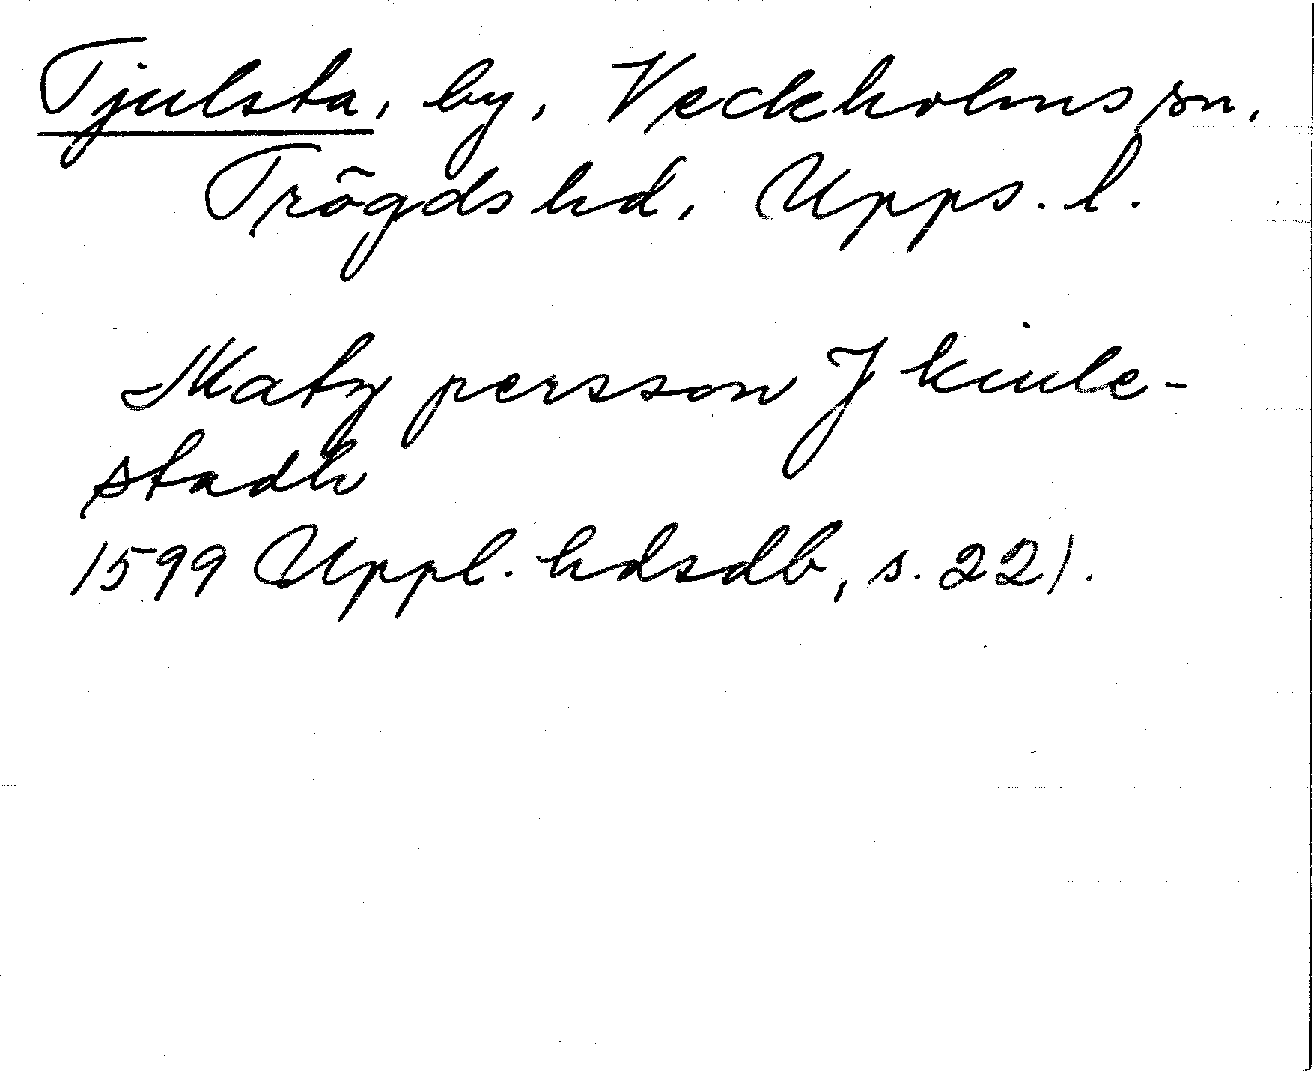 Tjulsta, by, Veckholms sn,
Trögds hd, Upps. l.
Matz persson J kiule-
stadh
1599 Uppl. hdsdb, s. 221.